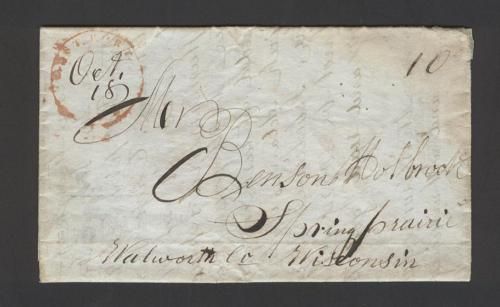 Oct.
18
10
Mr
Benson Holbrook
Spring prairie
Walworth Co Wisconsin